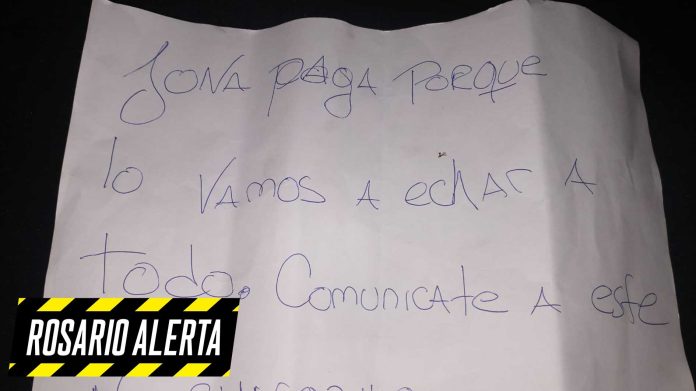 JONA PAGA PORQUE
lo VAMOS A echar A
todo. Comunicate A este
ROSARIO ALERTA